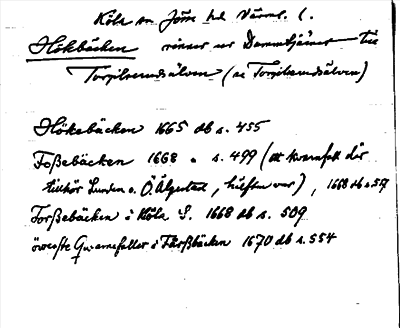 Köla sn Jösse hd Värml. l.
Hökbäcken rinner ur Dammtjärnet till
Torgilsrudsälven (se Torgilsrudsälven)
Hökebäcken 1665 db s. 455
Foßebäcken 1668 " s. 499 (ett kvarnfall där
tillhör Lunden o. Ö. Älgustad, hälften var), 1668 db s. 517
Forßebäcken i Köla S. 1668 db s. 509
öwerste Qwarnefallet i Fårßbäcken 1670 db s. 554